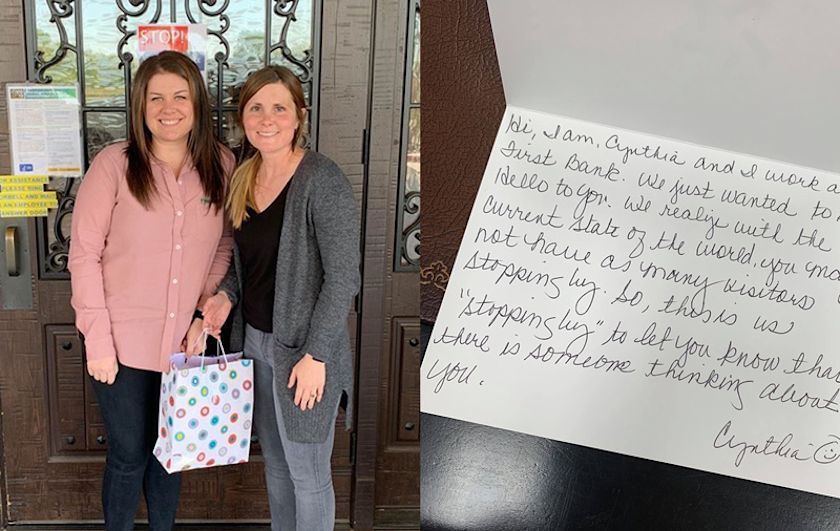 STOP!
ASSISTANCE
PLEASE RING
AND WAIT
AN EMPLOYEE TO
ANSWER DOOR
Hi, I am, Cynthia and I work a
First Bank. We just wanted to
Hello to you. We realize with the
current state of the world, you
not have as many visitors
stopping by. So, this is us
"stopping by" to let you know tha
there is someone thinking about
you.
Cynthia ☺